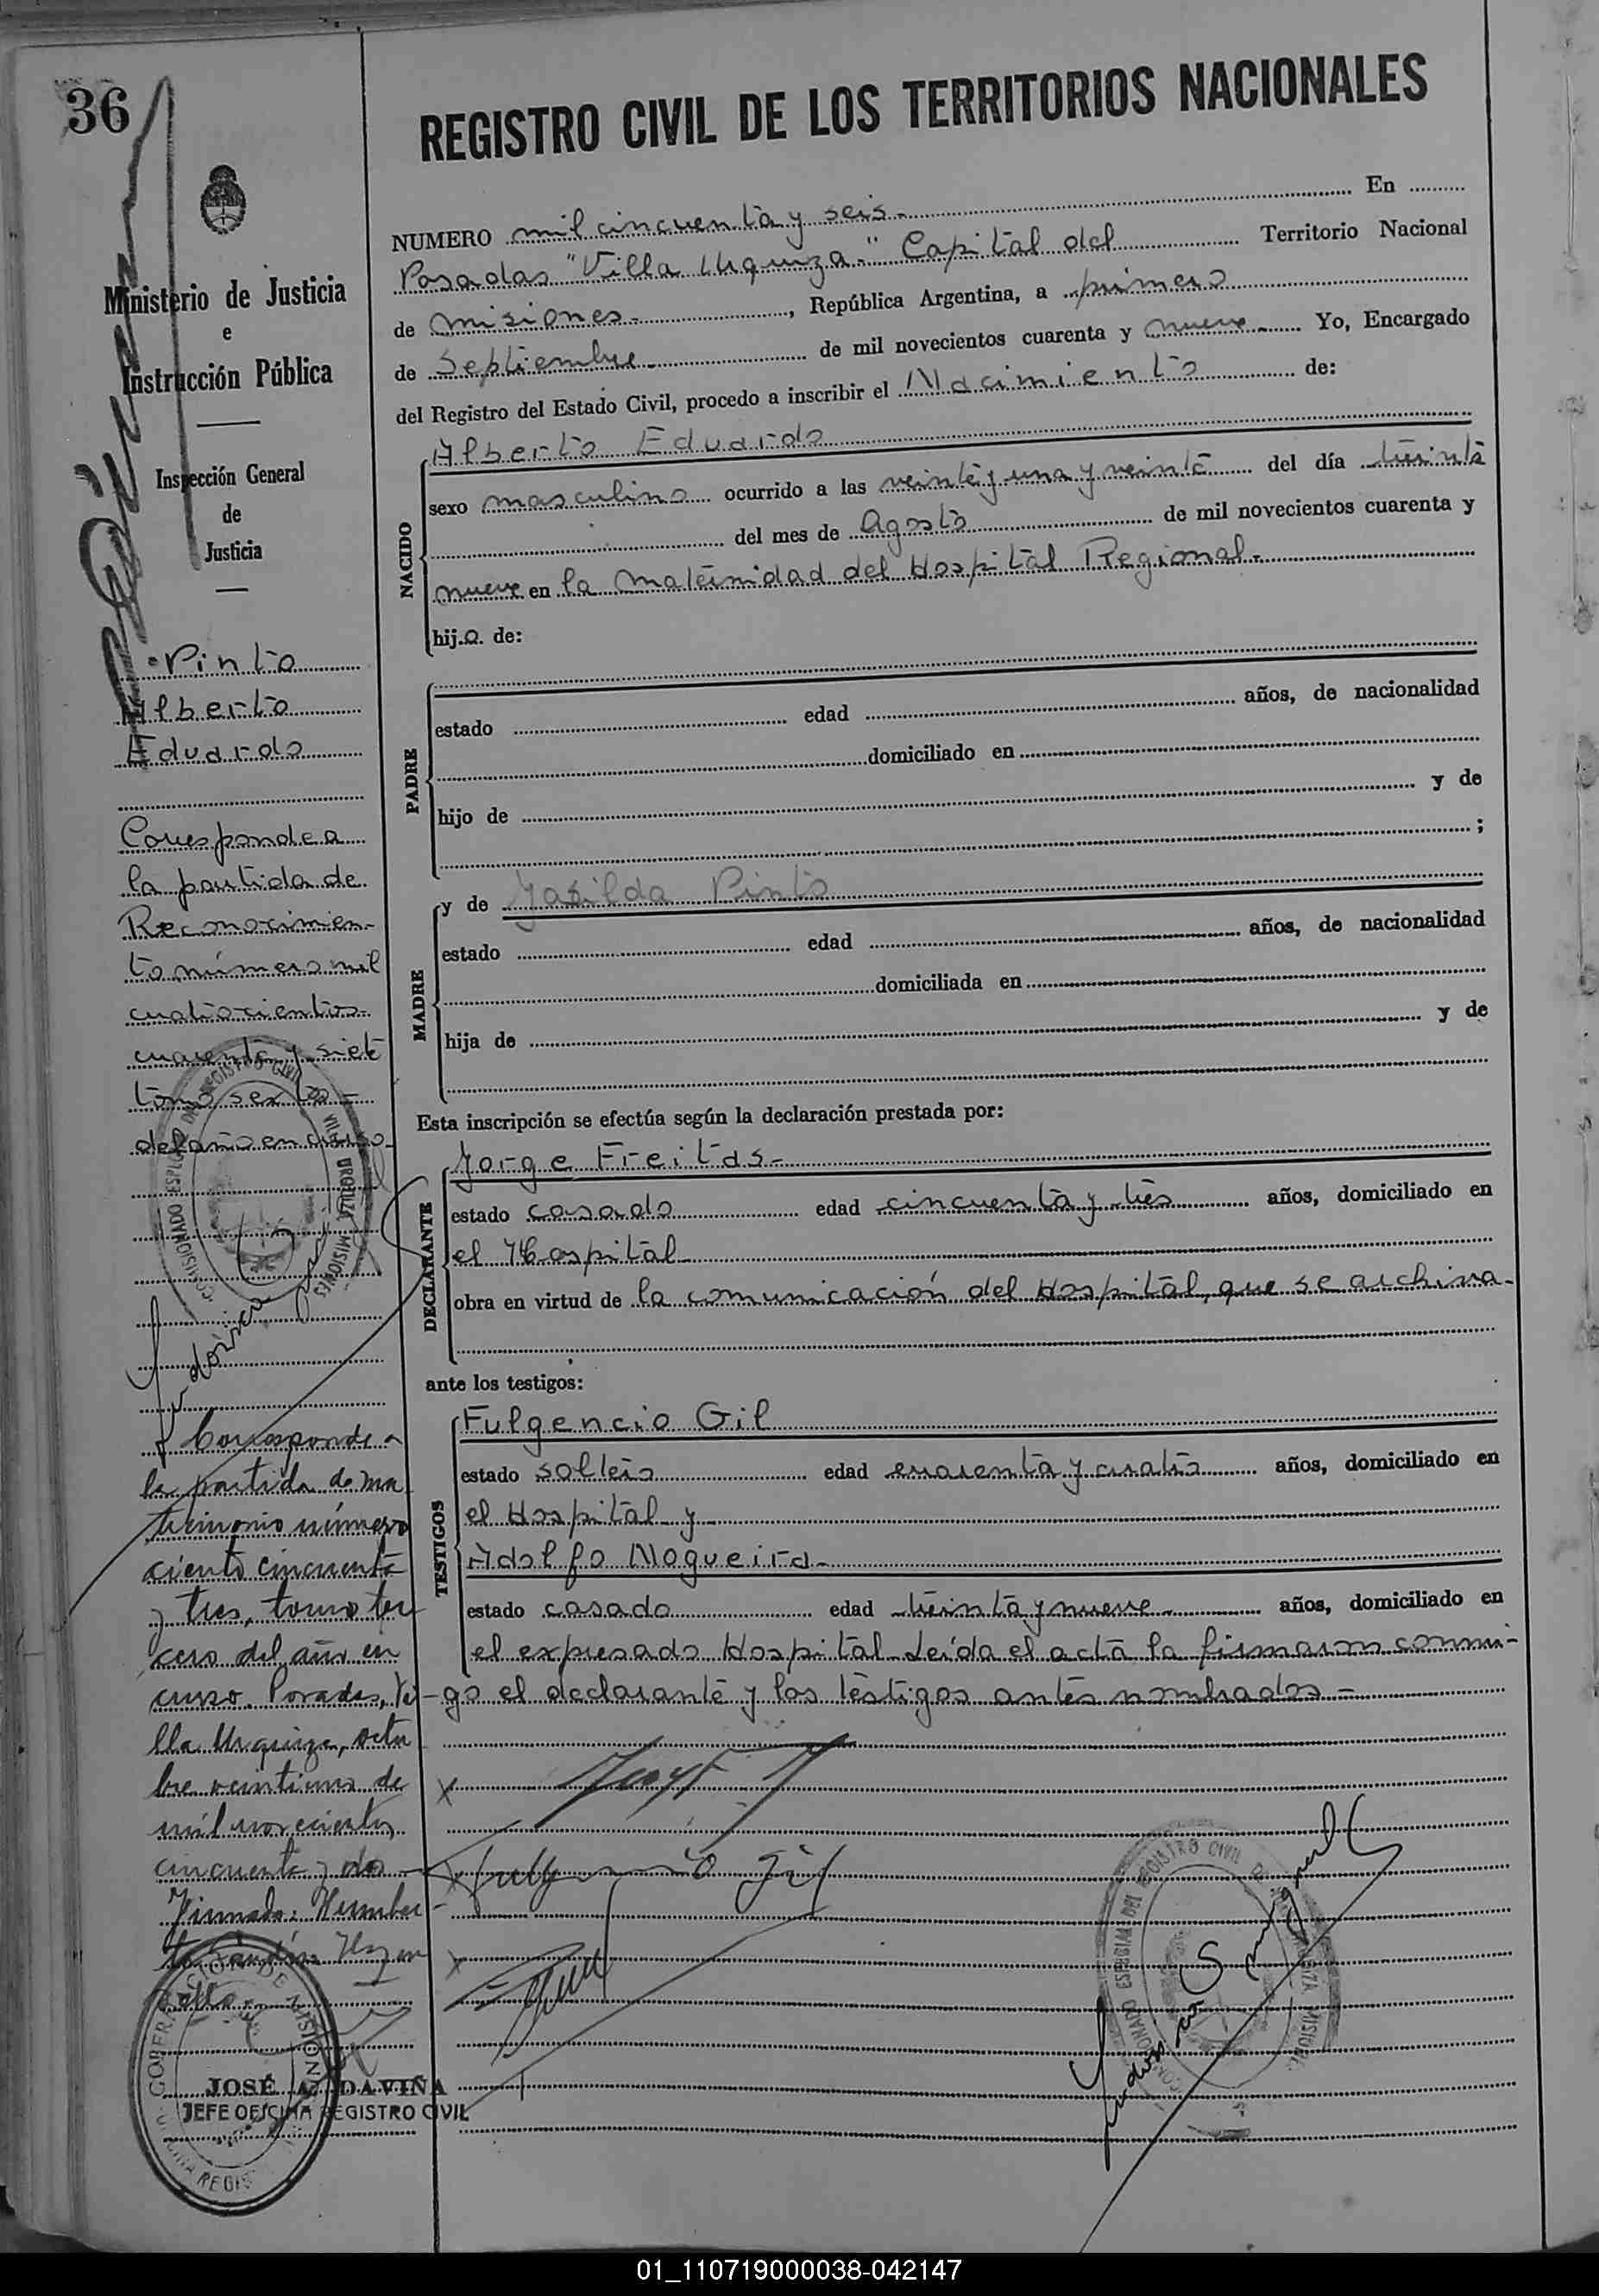 36
REGISTRO CIVIL DE LOS TERRITORIOS NACIONALES
Ministerio de Justicia
e
Instrucción Pública
Inspección General
de
Justicia
Pinto
Alberto
Eduardo
Corresponde a
la partida de
Reconocimien-
to número mil
cuatrocientos
cuarenta y siete
tomo sexto -
del año en curso.
COMISIONADO ESPECIAL DEL REGISTRO CIVIL VILLA URQUIZA MISIONES
Corresponde a
la partida de ma
trimonio número
ciento cincuenta
y tres, tomo ter
cero del año en
curso. Posadas, Vi-
lla Urquiza, octu
bre veintiuno de
mil novecientos
cincuenta y dos
Firmado: Humber-
to
GOBERNACION DE MISIONES
JOSÉ A. DAVIÑA
JEFE OFICINA REGISTRO CIVIL
NUMERO mil cincuenta y seis.- En
Posadas "Villa Urquiza." Capital del Territorio Nacional
de Misiones.-, República Argentina, a primero
de Septiembre.- de mil novecientos cuarenta y nueve.- Yo, Encargado
del Registro del Estado Civil, procedo a inscribir el Nacimiento de:
NACIDO
Alberto Eduardo
sexo masculino ocurrido a las veinte y una y veinte del día treinta
del mes de Agosto de mil novecientos cuarenta y
nueve en la Maternidad del Hospital Regional.-
hij.o. de:
PADRE
estado edad años, de nacionalidad
domiciliado en
hijo de y de
;
MADRE
y de Jasilda Pinto
estado edad años, de nacionalidad
domiciliada en
hija de y de
Esta inscripción se efectúa según la declaración prestada por:
DECLARANTE
Jorge Freitas.-
estado casado edad cincuenta y tres años, domiciliado en
el Hospital
obra en virtud de la comunicación del Hospital, que se archiva.-
ante los testigos:
TESTIGOS
Fulgencio Gil
estado soltero edad cuarenta y cuatro años, domiciliado en
el Hospital y
Adolfo Nogueira.-
estado casado edad treinta y nueve años, domiciliado en
el expresado Hospital. Leída el acta la firmaron conmi-
go el declarante y los testigos antes nombrados -
Fulgencio Gil
COMISIONADO ESPECIAL DEL REGISTRO CIVIL VILLA URQUIZA MISIONES
01_110719000038-042147